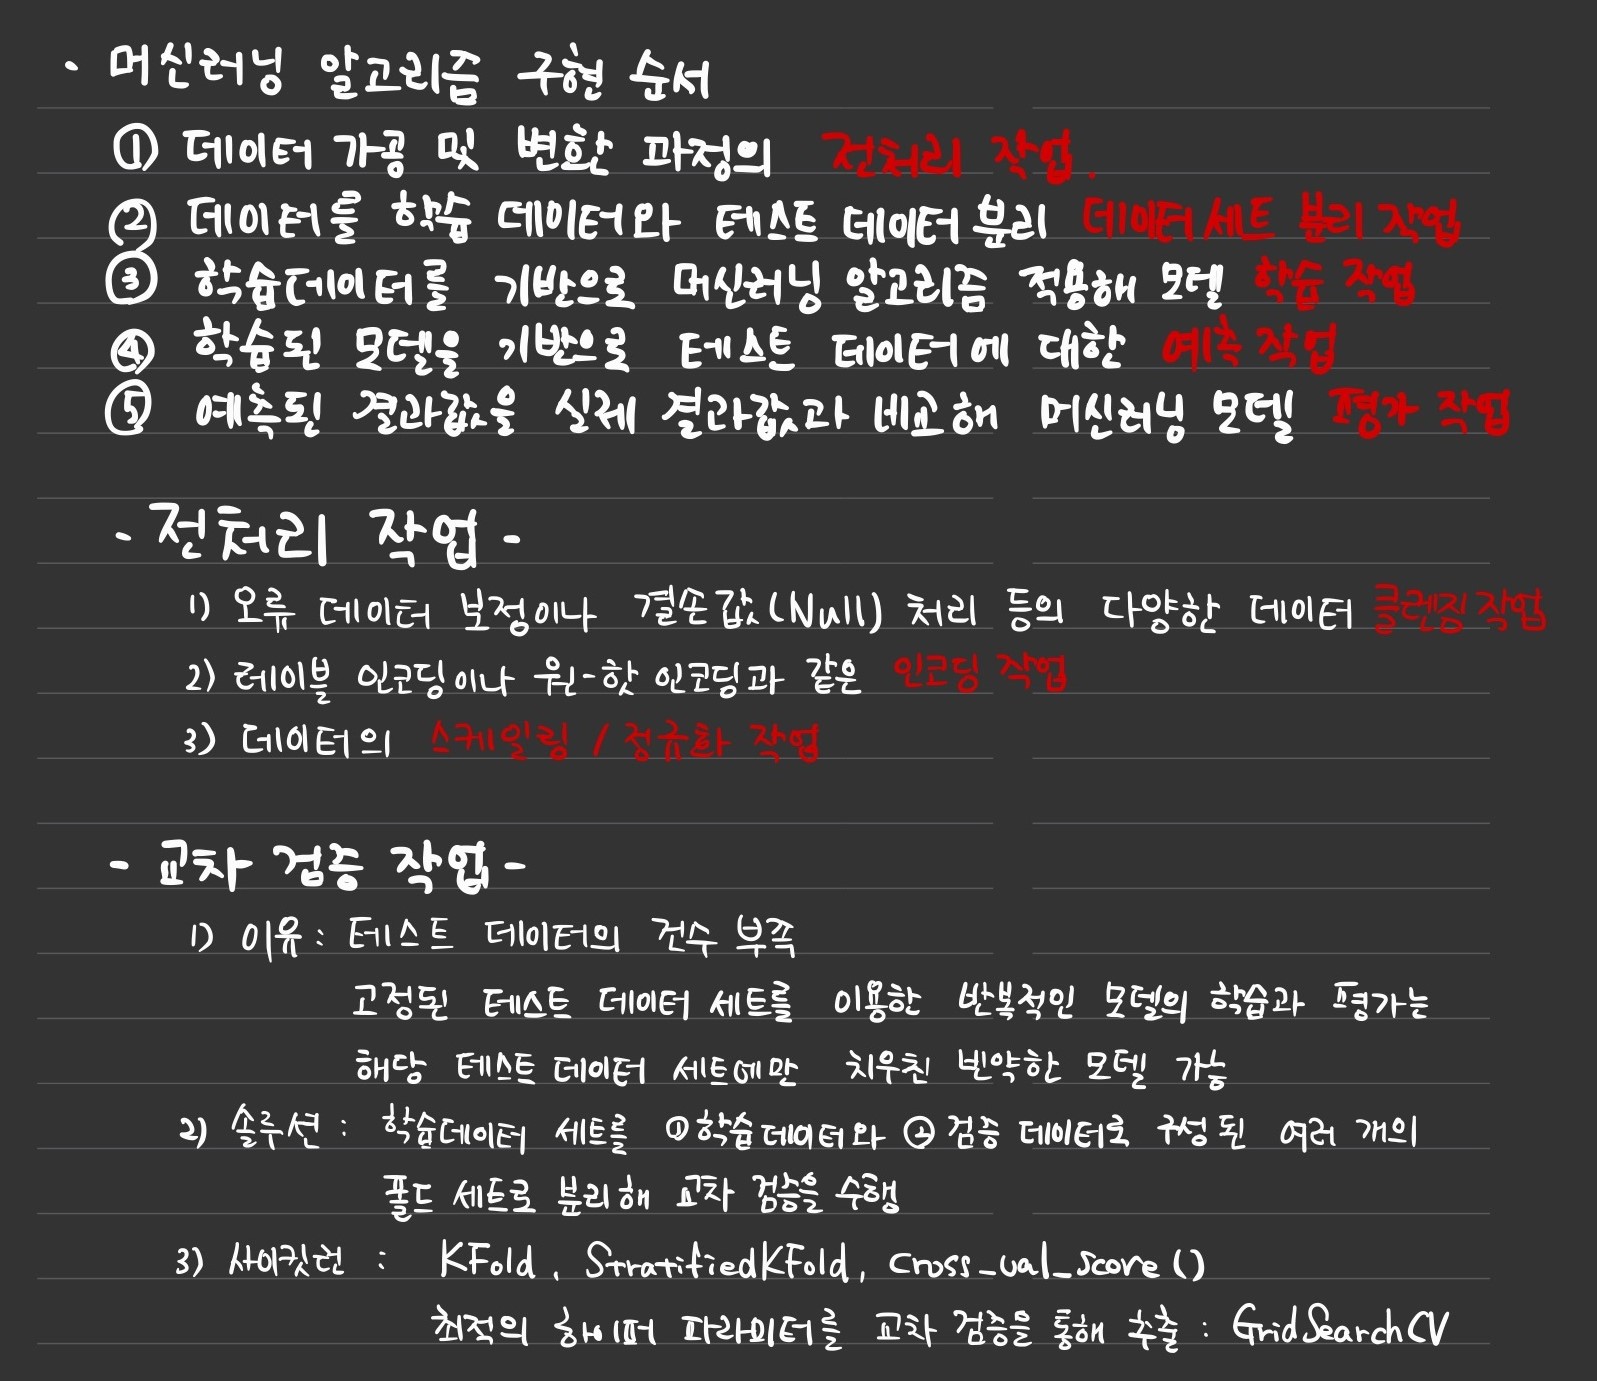 · 머신러닝 알고리즘 구현 순서
① 데이터 가공 및 변환 과정의 전처리 작업.
② 데이터를 학습 데이터와 테스트 데이터 분리 데이터 세트 분리 작업
③ 학습데이터를 기반으로 머신러닝 알고리즘 적용해 모델 학습 작업
④ 학습된 모델을 기반으로 테스트 데이터에 대한 예측 작업
⑤ 예측된 결과값을 실제 결과값과 비교해 머신러닝 모델 평가 작업
- 전처리 작업 -
1) 오류 데이터 보정이나 결손값(Null) 처리 등의 다양한 데이터 클렌징 작업
2) 레이블 인코딩이나 원-핫 인코딩과 같은 인코딩 작업
3) 데이터의 스케일링 / 정규화 작업
- 교차 검증 작업 -
1) 이유 : 테스트 데이터의 건수 부족
고정된 테스트 데이터 세트를 이용한 반복적인 모델의 학습과 평가는
해당 테스트 데이터 세트에만 치우친 빈약한 모델 가능
2) 솔루션 : 학습데이터 세트를 ① 학습데이터와 ② 검증 데이터로 구성된 여러 개의
폴드 세트로 분리해 교차 검증을 수행
3) 사이킷런 : KFold, StratifiedKFold, cross_val_score()
최적의 하이퍼 파라미터를 교차 검증을 통해 추출 : GridSearchCV